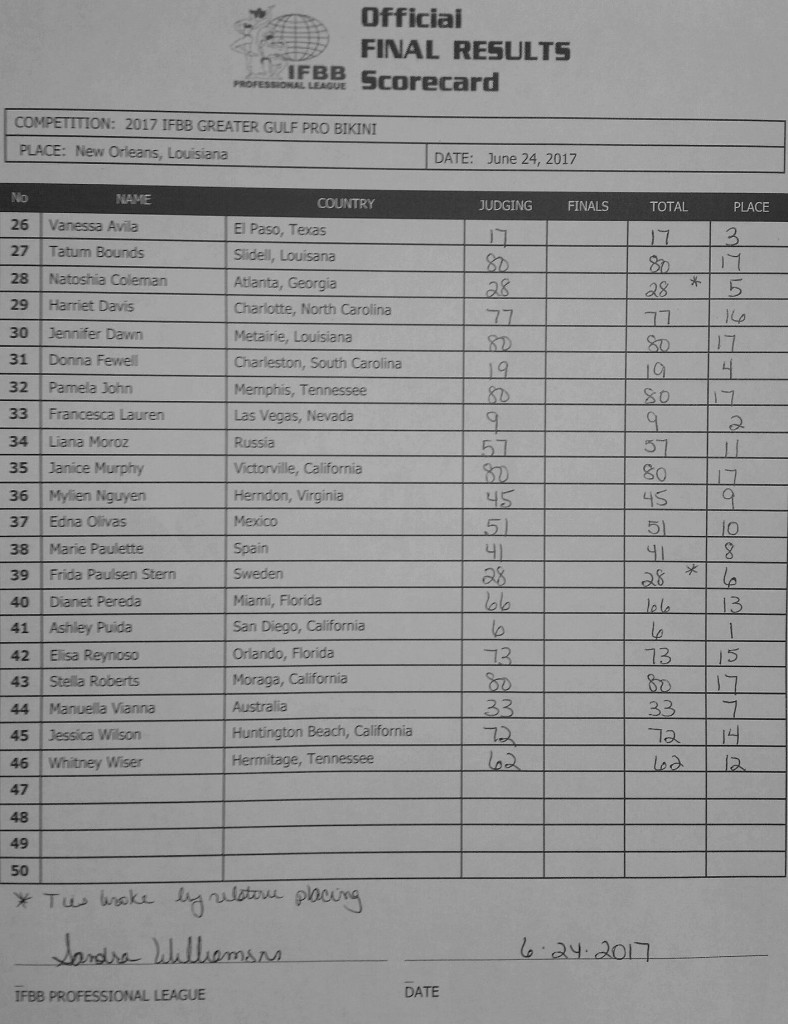 Official
FINAL RESULTS
IFBB Scorecard
PROFESSIONAL LEAGUE
COMPETITION: 2017 IFBB GREATER GULF PRO BIKINI
PLACE: New Orleans, Louisiana DATE: June 24, 2017
No NAME COUNTRY JUDGING FINALS TOTAL PLACE
26 Vanessa Avila El Paso, Texas 17 17 3
27 Tatum Bounds Slidell, Louisana 80 80 17
28 Natoshia Coleman Atlanta, Georgia 28 28 * 5
29 Harriet Davis Charlotte, North Carolina 77 77 16
30 Jennifer Dawn Metairie, Louisiana 80 80 17
31 Donna Fewell Charleston, South Carolina 19 19 4
32 Pamela John Memphis, Tennessee 80 80 17
33 Francesca Lauren Las Vegas, Nevada 9 9 2
34 Liana Moroz Russia 57 57 11
35 Janice Murphy Victorville, California 80 80 17
36 Mylien Nguyen Herndon, Virginia 45 45 9
37 Edna Olivas Mexico 51 51 10
38 Marie Paulette Spain 41 41 8
39 Frida Paulsen Stern Sweden 28 28 * 6
40 Dianet Pereda Miami, Florida 66 66 13
41 Ashley Puida San Diego, California 6 6 1
42 Elisa Reynoso Orlando, Florida 73 73 15
43 Stella Roberts Moraga, California 80 80 17
44 Manuella Vianna Australia 33 33 7
45 Jessica Wilson Huntington Beach, California 72 72 14
46 Whitney Wiser Hermitage, Tennessee 62 62 12
47
48
49
50
* Ties broke by relative placing
Sandra Williamson 6·24·2017
IFBB PROFESSIONAL LEAGUE DATE